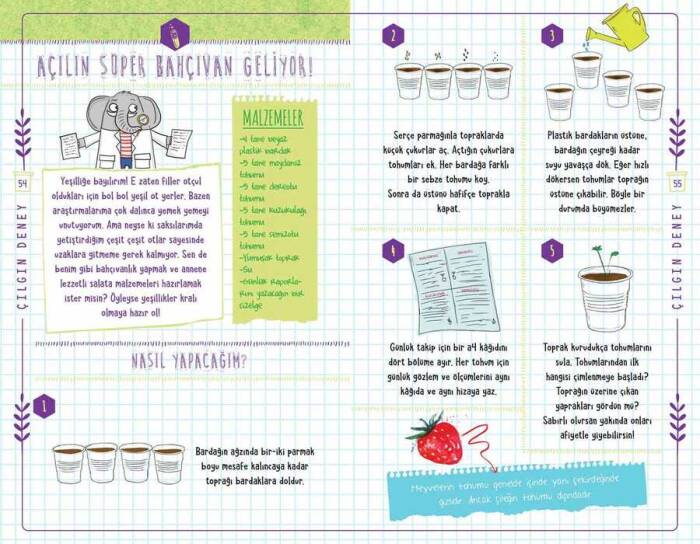 AÇILIN SÜPER BAHÇIVAN GELİYOR!
Yeşilliğe bayılırım! E zaten filler otçul
oldukları için bol bol yeşil ot yerler. Bazen
araştırmalarıma çok dalınca yemek yemeyi
unutuyorum. Ama neyse ki saksılarımda
yetiştirdiğim çeşit çeşit otlar sayesinde
uzaklara gitmeme gerek kalmıyor. Sen de
benim gibi bahçıvanlık yapmak ve annene
lezzetli salata malzemeleri hazırlamak
ister misin? Öyleyse yeşillikler kralı
olmaya hazır ol!
MALZEMELER
-4 tane beyaz
plastik bardak
-5 tane maydanoz
tohumu
-5 tane dereotu
tohumu
-5 tane kuzukulağı
tohumu
-5 tane semizotu
tohumu
-Yumuşak toprak
-Su
-Günlük raporla-
rını yazacağın bir
çizelge
54
ÇILGIN DENEY
NASIL YAPACAĞIM?
1
Bardağın ağzında bir-iki parmak
boyu mesafe kalıncaya kadar
toprağı bardaklara doldur.
2
Serçe parmağınla topraklarda
küçük çukurlar aç. Açtığın çukurlara
tohumları ek. Her bardağa farklı
bir sebze tohumu koy.
Sonra da üstünü hafifçe toprakla
kapat.
3
Plastik bardakların üstüne,
bardağın çeyreği kadar
suyu yavaşça dök. Eğer hızlı
dökersen tohumlar toprağın
üstüne çıkabilir. Böyle bir
durumda büyümezler.
4
Günlük takip için bir a4 kâğıdını
dört bölüme ayır. Her tohum için
günlük gözlem ve ölçümlerini aynı
kâğıda ve aynı hizaya yaz.
5
Toprak kurudukça tohumlarını
sula. Tohumlarından ilk
hangisi çimlenmeye başladı?
Toprağın üzerine çıkan
yaprakları gördün mü?
Sabırlı olursan yakında onları
afiyetle yiyebilirsin!
Meyvelerin tohumu genelde içinde yani çekirdeğinde
gizlidir. Ancak çileğin tohumu dışındadır.
55
ÇILGIN DENEY